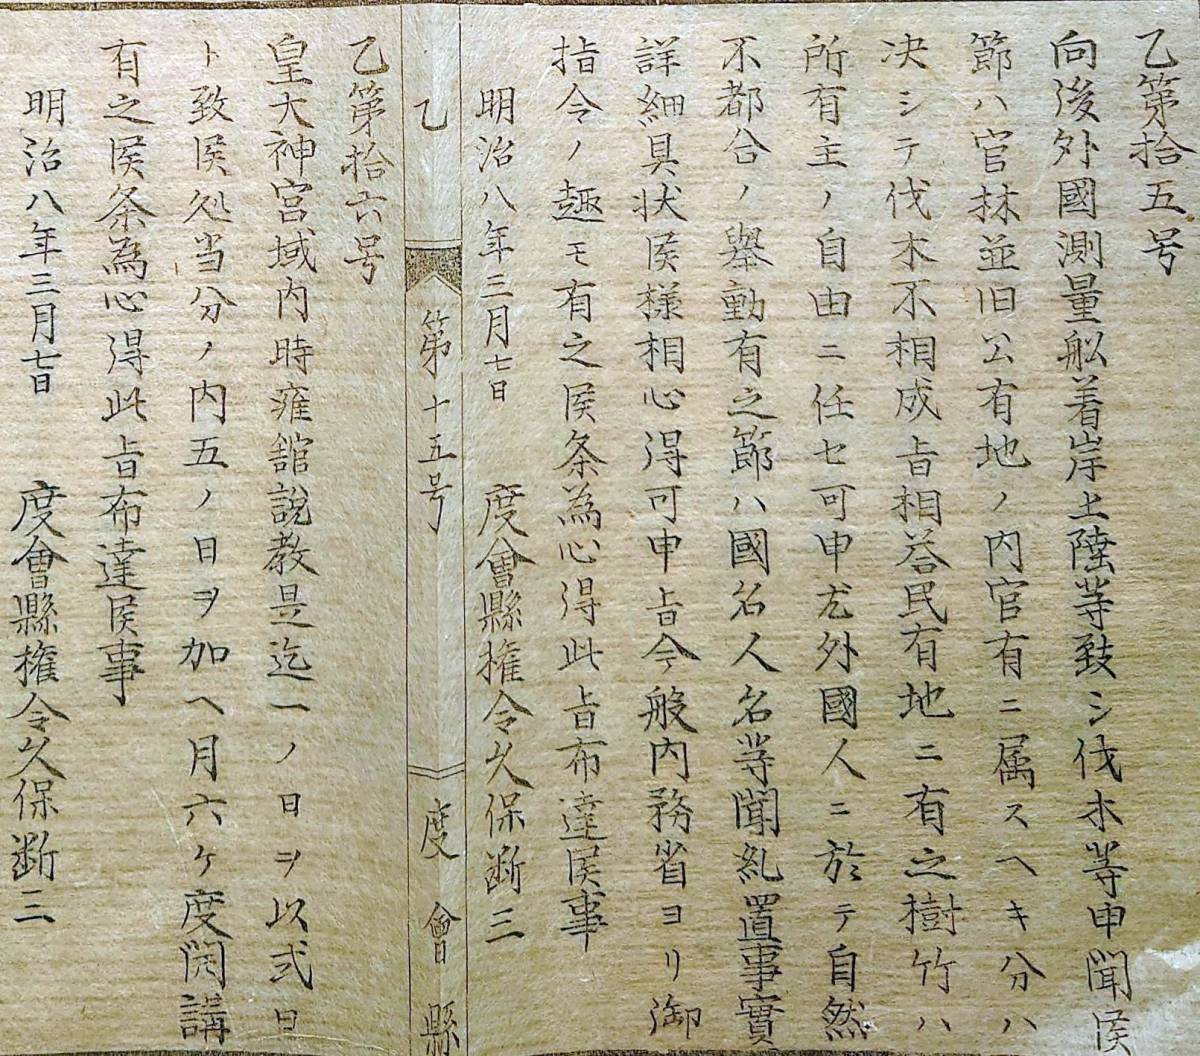 乙第拾五号
向後外國測量舩着岸上陸等致シ伐木等申聞候
節ハ官林並旧公有地ノ内官有ニ属スヘキ分ハ
决シテ伐木不相成旨相荅民有地ニ有之樹竹ハ
所有主ノ自由ニ任セ可申尤外國人ニ於テ自然
不都合ノ舉動有之節ハ國名人名等聞糺置事實
詳細具状候様相心得可申旨今般内務省ヨリ御
指令ノ趣モ有之候条為心得此旨布達候事
明治八年三月七日 度會縣権令久保断三
乙 第十五号 度會縣
乙第拾六号
皇大神宮域内時雍舘説教是迄一ノ日ヲ以弐日
ト致候処当分ノ内五ノ日ヲ加ヘ月六ケ度開講
有之候条為心得此旨布達候事
明治八年三月七日 度會縣権令久保断三